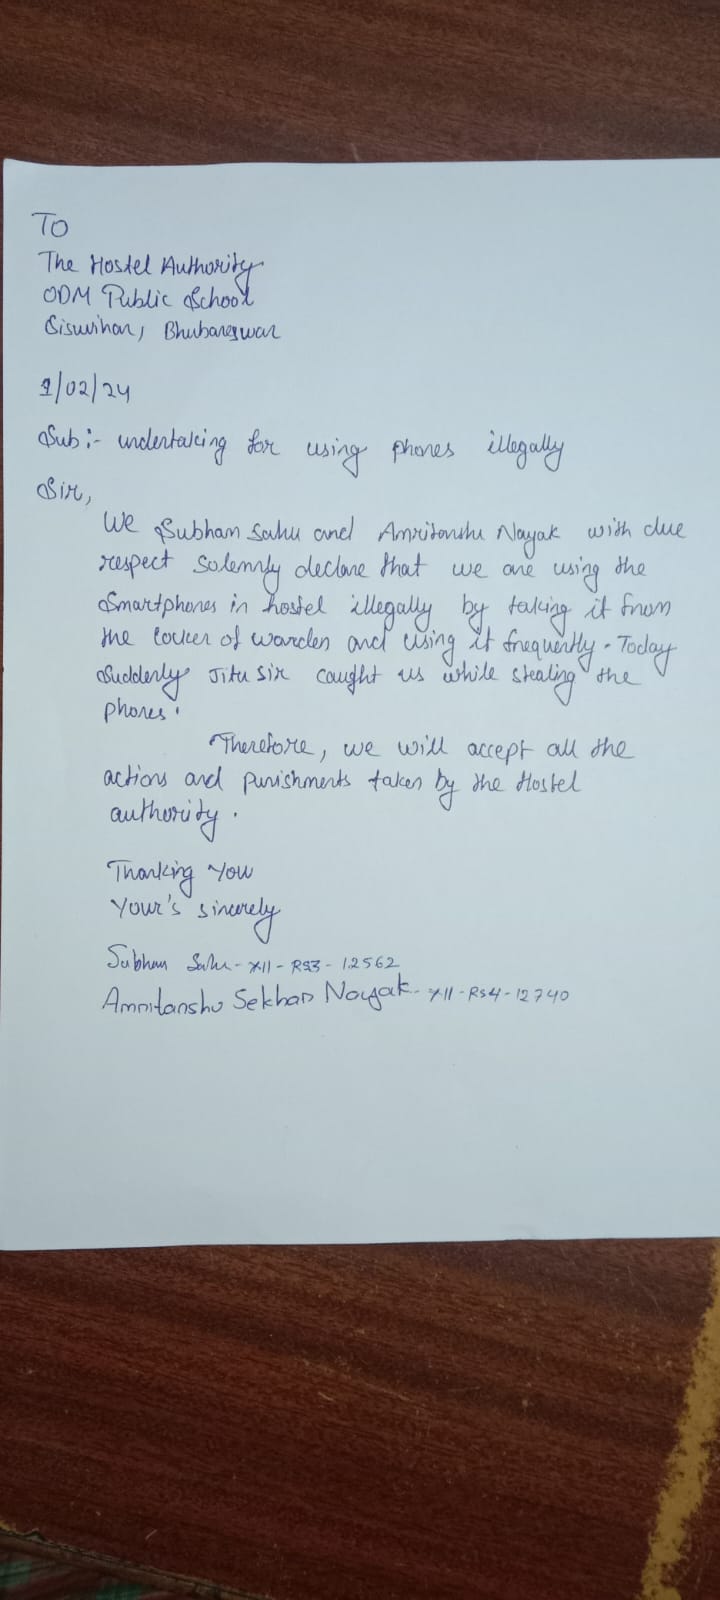 To
The Hostel Authority
ODM Public School
Sisuvihar, Bhubaneswar
1/02/24
Sub:- undertaking for using phones illegally
Sir,
We Subham Sahu and Amritanshu Nayak with due
respect solemnly declare that we are using the
Smartphones in hostel illegally by taking it from
the locker of warden and using it frequently. Today
Suddenly Jitu sir caught us while stealing the
phones.
Therefore, we will accept all the
actions and punishments taken by the Hostel
authority.
Thanking You
Your's sincerely
Subham Sahu - XII - RS3 - 12562
Amritanshu Sekhar Nayak - XII - RS4 - 12740